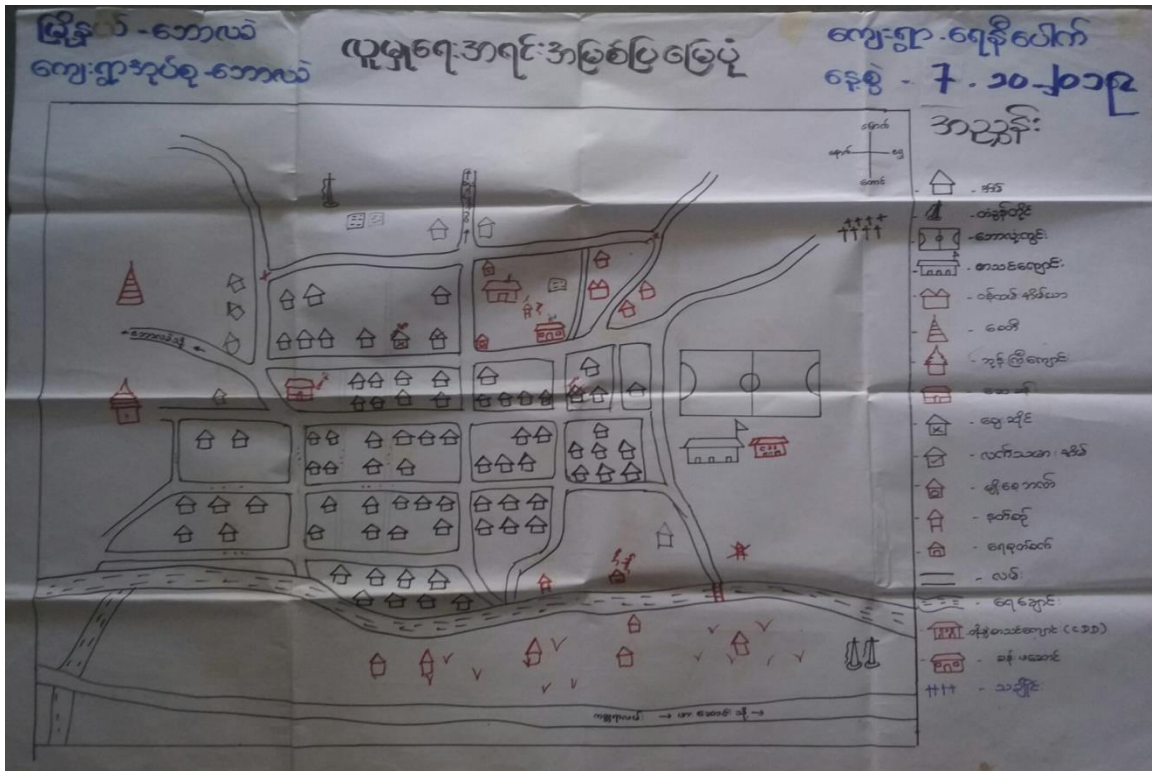 မြို့နယ် - ဘောလခဲ
ကျေးရွာအုပ်စု - ဘောလခဲ
လူမှုရေးအရင်းအမြစ်ပြမြေပုံ
ကျေးရွာ - ရေနီပေါက်
နေ့စွဲ - 7.၁၀.၂၀၁၉
အညွှန်း
မြောက်
အနောက်
ရှေ့
တောင်
- အိမ်
- တံခွန်တိုင်
- ဘောလုံးကွင်း
- စာသင်ကျောင်း
- ဝန်ထမ်းအိမ်ယာ
- စေတီ
- ဘုန်းကြီးကျောင်း
- ဆေးခန်း
- ဈေးဆိုင်
- လက်သမားအိမ်
- မျိုးစေ့ဘဏ်
- နတ်စင်
- ရေစုပ်စက်
- လမ်း
- ရေချောင်း
- တိုးချဲ့စာသင်ကျောင်း (CDD)
- ခန်းမဆောင်
- သင်္ချိုင်း
ဘောလခဲသို့
ကတ္တရာလမ်း → ဖားဆောင်းသို့ →